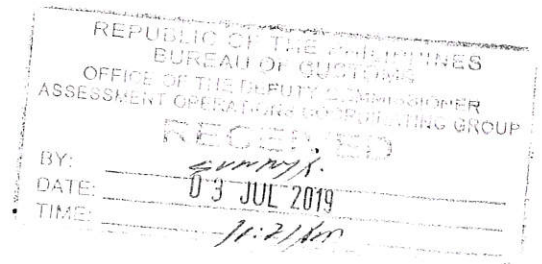 REPUBLIC OF THE PHILIPPINES
BUREAU OF CUSTOMS
OFFICE OF THE DEPUTY COMMISSIONER
ASSESSMENT OPERATIONS COORDINATING GROUP
RECEIVED
BY:
DATE: 03 JUL 2019
TIME: 11:21 AM